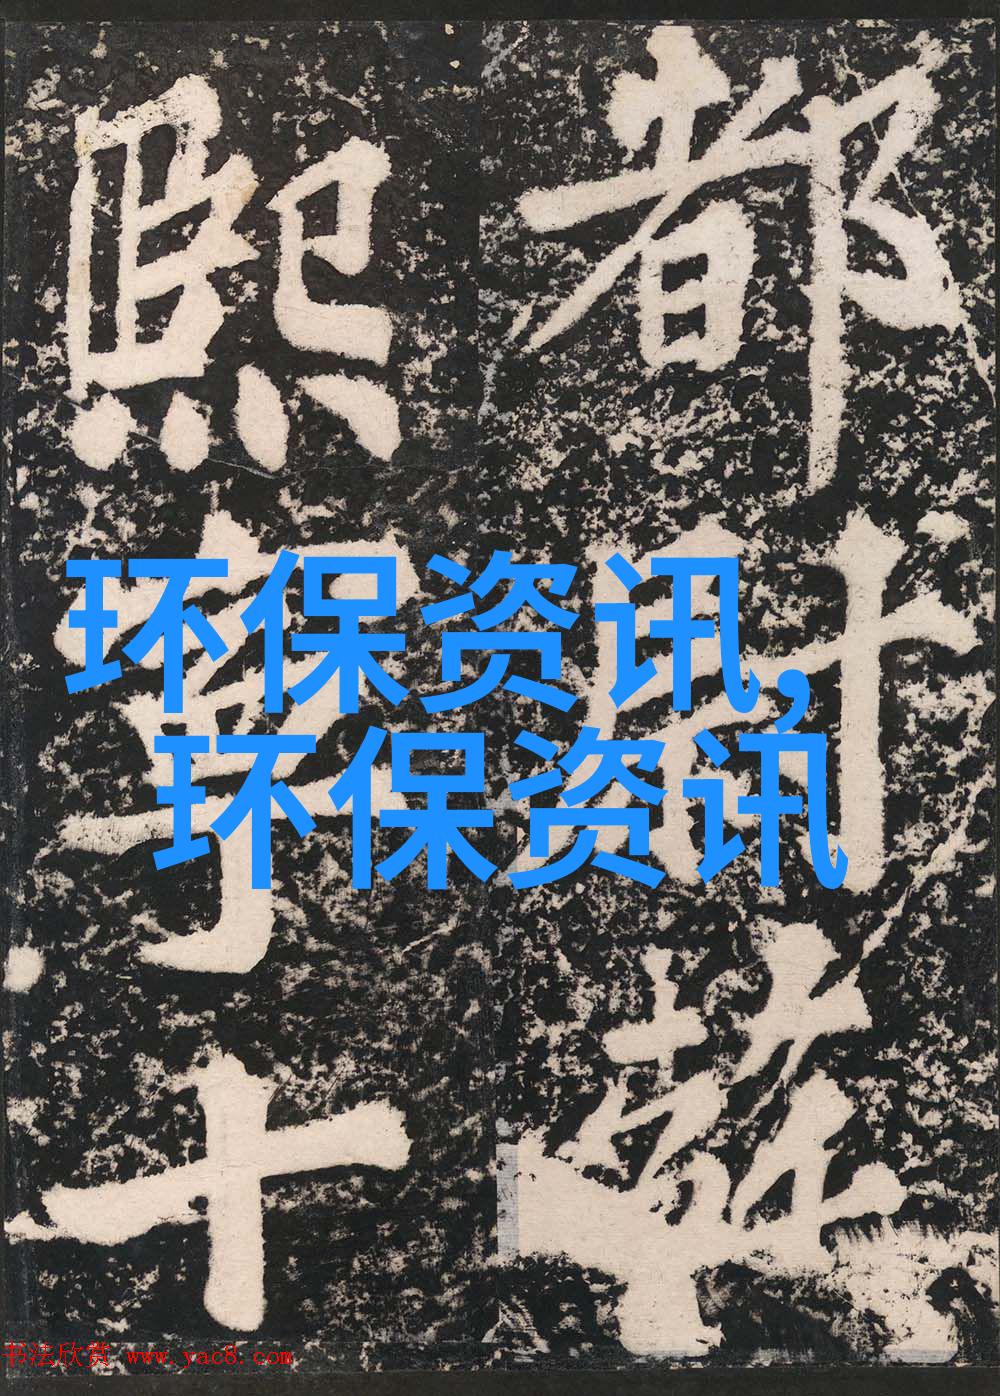 都尉薛
熙寧十
环保资讯,
环保资讯
书法欣赏 www.yac8.com